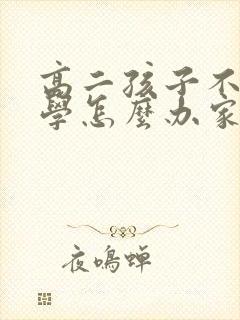 高二孩子不
學怎麼办家
夜鳴蝉